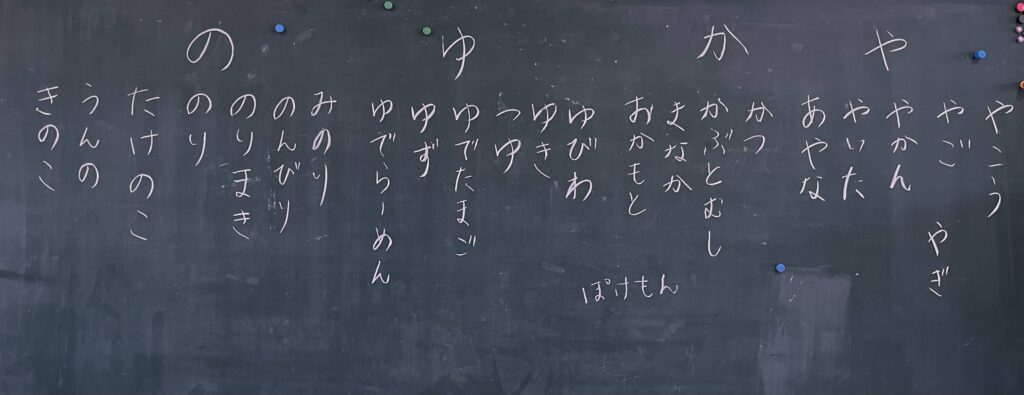 や
やこう
やご
やぎ
やかん
やいた
あやな
か
かつ
かぶとむし
まなか
おかもと
ゆ
ゆびわ
ゆき
つゆ
ゆでたまご
ゆず
ゆでらーめん
ぽけもん
の
みのり
のんびり
のりまき
のり
たけのこ
うんの
きのこ